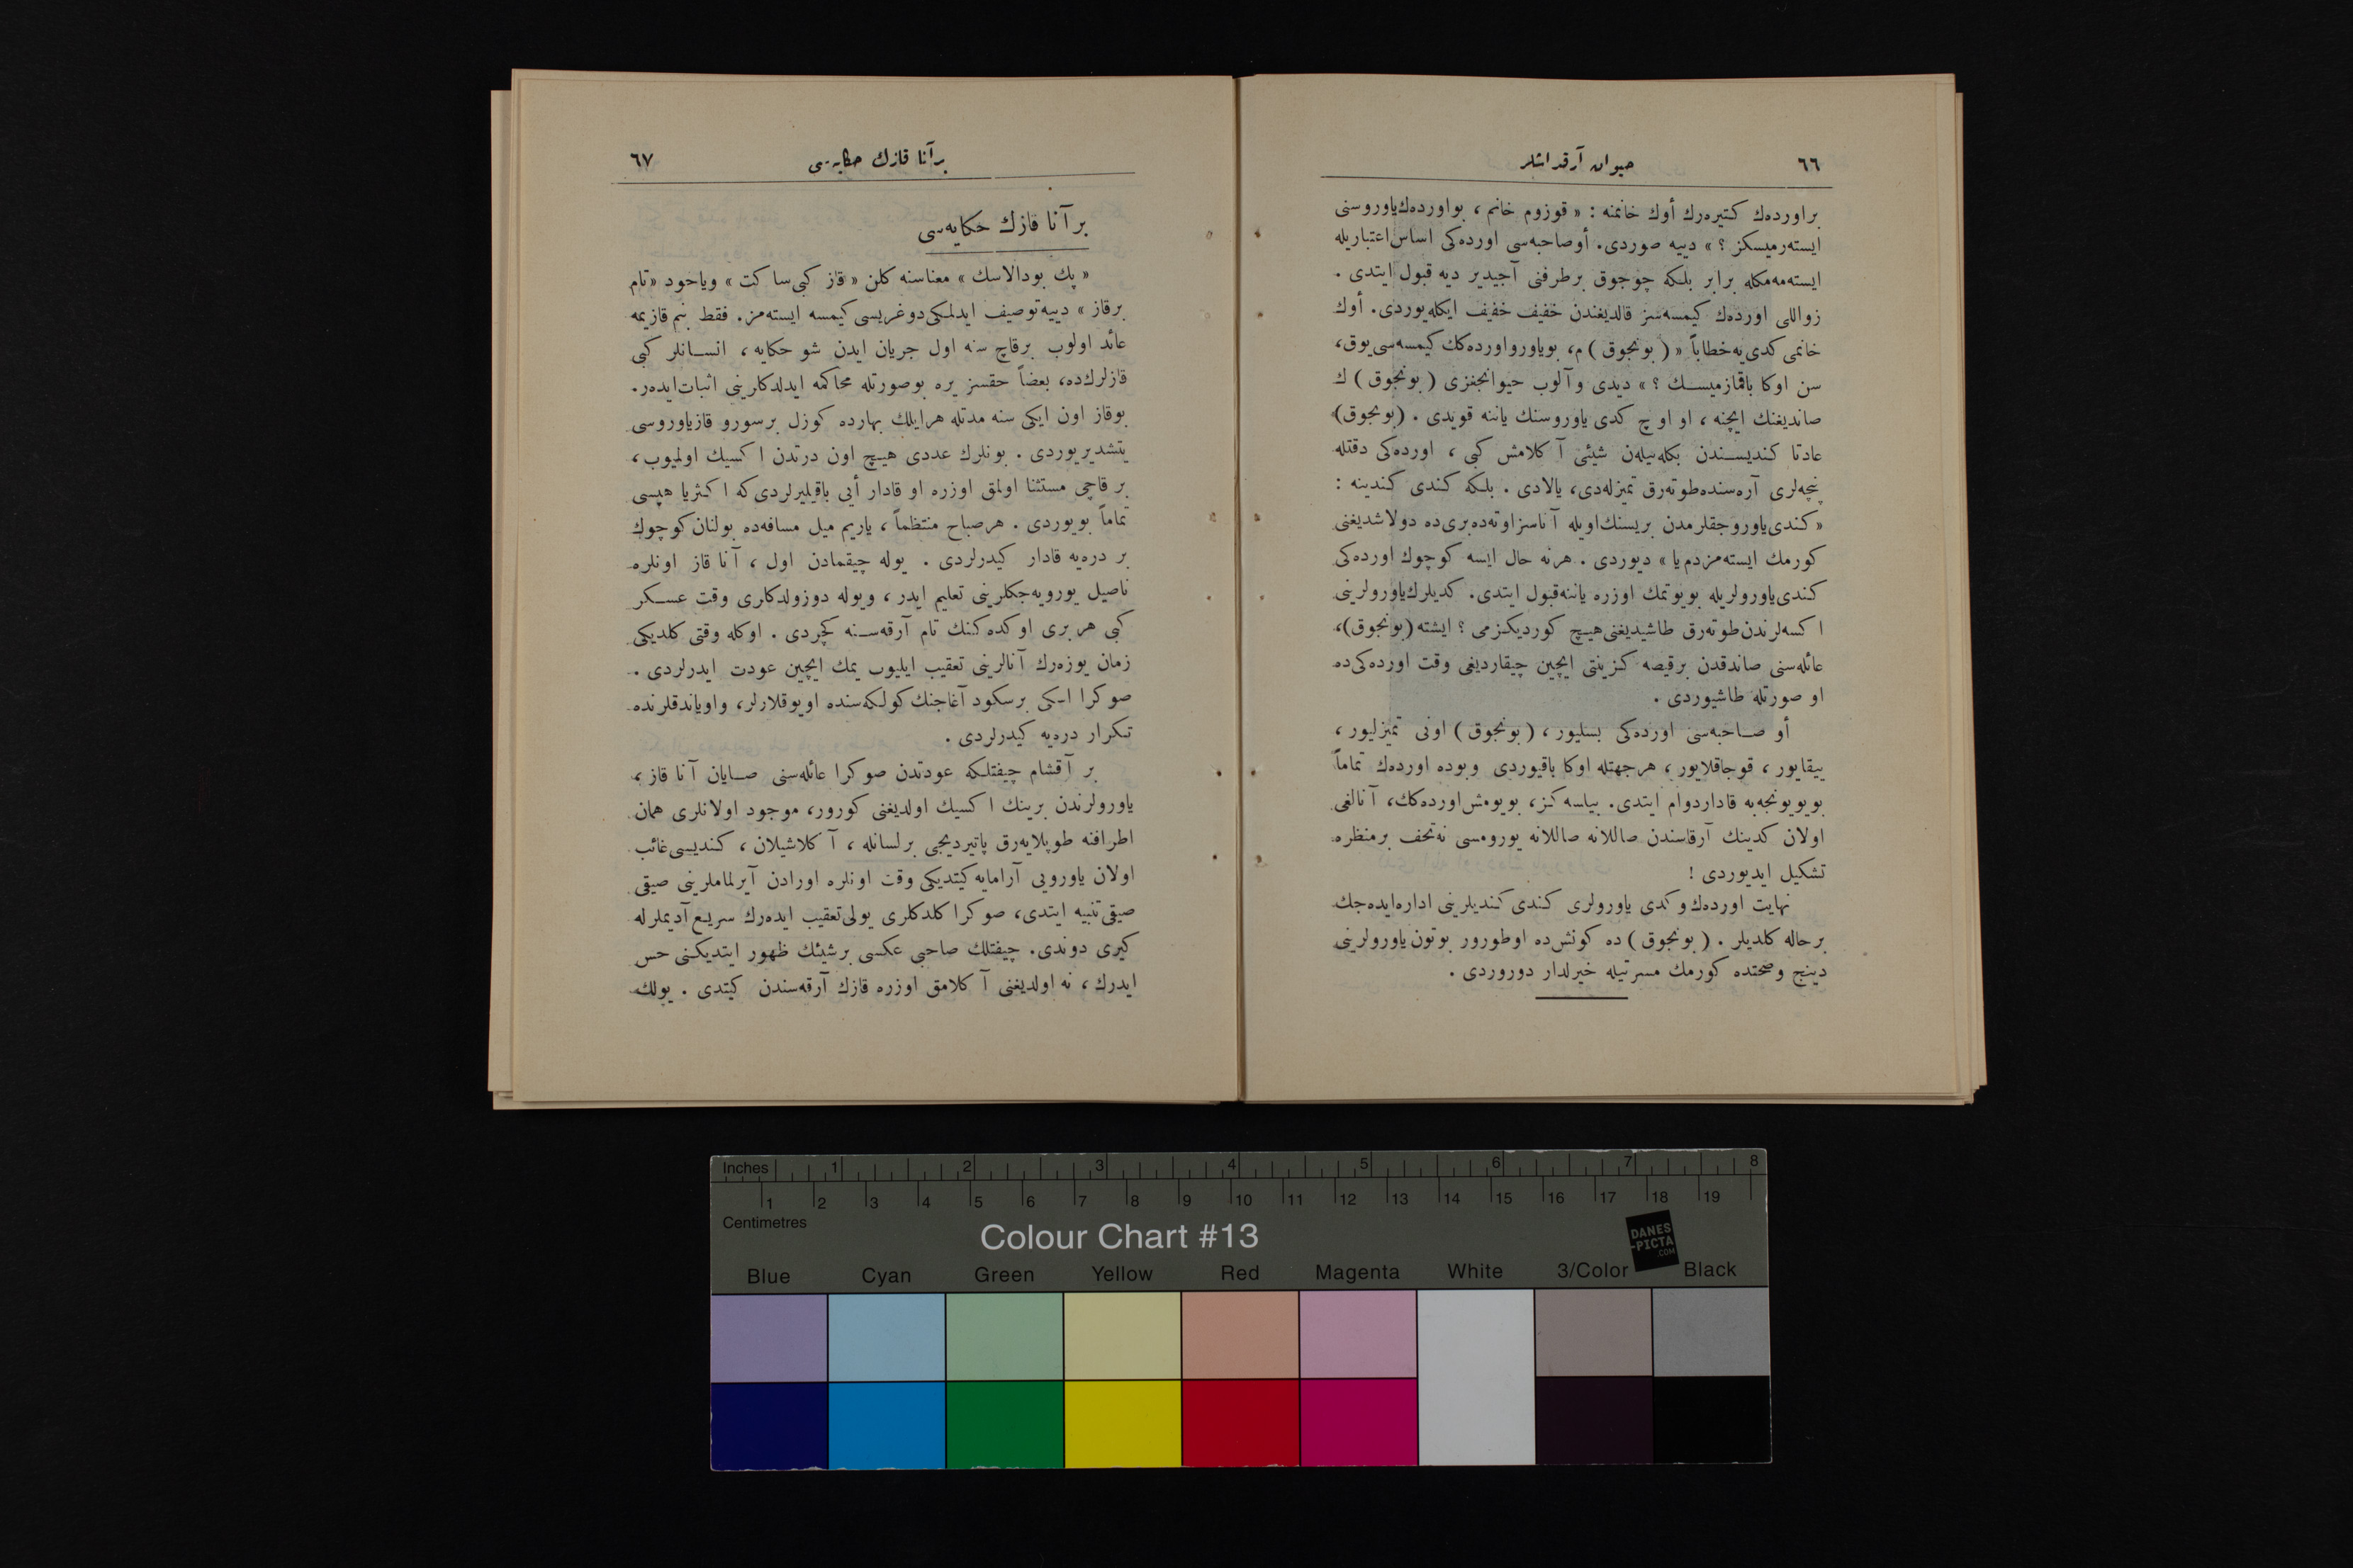 ٦٦
حيوان آرقداشلر
براوردەك كتيرەرك أوك خانمنه : « قوزوم خانم ، بواوردەك ياوروسنى
ايستەرميسكز ؟ » دييه صوردى. أوصاحبەسى اوردەكى اساس اعتباريله
ايستەمەمكله برابر بلكه چوجوق برطرفنى آجيدير ديه قبول ايتدى .
زواللى اوردەك كيمسەسز قالديغندن خفيف خفيف ايكلەيوردى. أوك
خانمى كدى يه خطاباً « ( بونجوق ) م، بوياورواوردەكك كيمسەسى يوق،
سن اوكا باقمازميسـك ؟ » ديدى وآلوب حيوانجغزى ( بونجوق ) ك
صانديغنك ايچنه ، او اوچ كدى ياوروسنك ياننه قويدى . (بونجوق)
عادتا كنديسـندن بكلەنيلەن شيئى آ كلامش كبى ، اوردەكى دقتله
پنچەلرى آرەسندە طوتەرق تميزلەدى، يالادى . بلكه كندى كندينه :
« كندى ياوروجقلرمدن بريسنك اويله آناسز اوتەدە برىدە دولاشديغنى
كورمك ايستەمزدم يا » ديوردى . هرنه حال ايسه كوچوك اوردەكى
كندى ياورولريله بويوتمك اوزره ياننه قبول ايتدى. كديلرك ياورولرينى
ا كسەلرندن طوتەرق طاشيديغنى هيچ كورديكزمى ؟ ايشته (بونجوق)،
عائلەسنى صاندقدن برقيصه كزينتى ايچين چيقارديغى وقت اوردەكى دە
او صورتله طاشيوردى .
أو صـاحبەسى اوردەكى بسليور ، ( بونجوق ) اونى تميزليور ،
ييقايور ، قوجاقلايور ، هرجهتله اوكا باقيوردى وبوده اوردەك تماماً
بويويونجەيه قاداردوام ايتدى. بيلسەكز، بويومش اوردەكك، آنالغى
اولان كدينك آرقاسندن صاللانه صاللانه يورومسى نه تحف برمنظره
تشكيل ايديوردى !
نهايت اوردەك وكدى ياورولرى كندى كنديلرينى اداره ايدەجك
برحاله كلديلر . ( بونجوق ) ده كونش ده اوطورور بوتون ياورولرينى
دينج وصحتده كورمك مسرتيله خيرلدار دوروردى .
برآنا قازك حكايەسى
٦٧
برآنا قازك حكايەسى
« پك بودالاسك » معناسنه كلن « قاز كبى ساكت » وياخود « تام
برقاز » دييه توصيف ايدلمكى دوغريسى كيمسه ايستەمز. فقط بنم قازيمه
عائد اولوب برقاچ سنه اول جريان ايدن شو حكايه ، انسـانلر كبى
قازلرك ده، بعضاً حقسز يره بوصورتله محاكمه ايدلدكلرينى اثبات ايدەر.
بوقاز اون ايكى سنه مدتله هرايلك بهارده كوزل برسورو قازياوروسى
يتشديريوردى . بونلرك عددى هيچ اون درتدن ا كسيك اولميوب،
بر قاچى مستثنا اولمق اوزره او قادار أيى باقيليرلردى كه ا كثريا هپسى
تماماً بويوردى . هرصباح منتظماً ، ياريم ميل مسافەده بولنان كوچوك
بر درەيه قادار كيدرلردى . يوله چيقمادن اول ، آنا قاز اونلره
ناصيل يورويەجكلرينى تعليم ايدر ، ويوله دوزولدكلرى وقت عسـكر
كبى هر برى اوكدەكنك تام آرقەسـنه كچردى . اوكله وقتى كلديكى
زمان يوزەرك آنالرينى تعقيب ايليوب يمك ايچين عودت ايدرلردى .
صوكرا اسكى برسكود آغاجنك كولكەسنده اويوقلارلر، واوياندقلرنده
تكرار درەيه كيدرلردى .
بر آقشام چيفتلكه عودتدن صوكرا عائلەسنى صـايان آنا قاز ،
ياورولرندن برينك ا كسيك اولديغنى كورور، موجود اولانلرى همان
اطرافنه طوپلايەرق پاتيرديجى برلسانله ، آ كلاشيلان ، كنديسى غائب
اولان ياوروبى آرامايه كيتديكى وقت اونلره اورادن آيرلماملرينى صيقى
صيقى تنبيه ايتدى، صوكرا كلدكلرى يولى تعقيب ايدەرك سريع آديملرله
كيرى دوندى. چيفتلك صاحبى عكسى برشيئك ظهور ايتديكنى حس
ايدرك ، نه اولديغنى آ كلامق اوزره قازك آرقەسندن كيتدى . يولك
Inches 1 2 3 4 5 6 7 8
1 2 3 4 5 6 7 8 9 10 11 12 13 14 15 16 17 18 19
Centimetres
Colour Chart #13
DANES
-PICTA
.COM
Blue Cyan Green Yellow Red Magenta White 3/Color Black